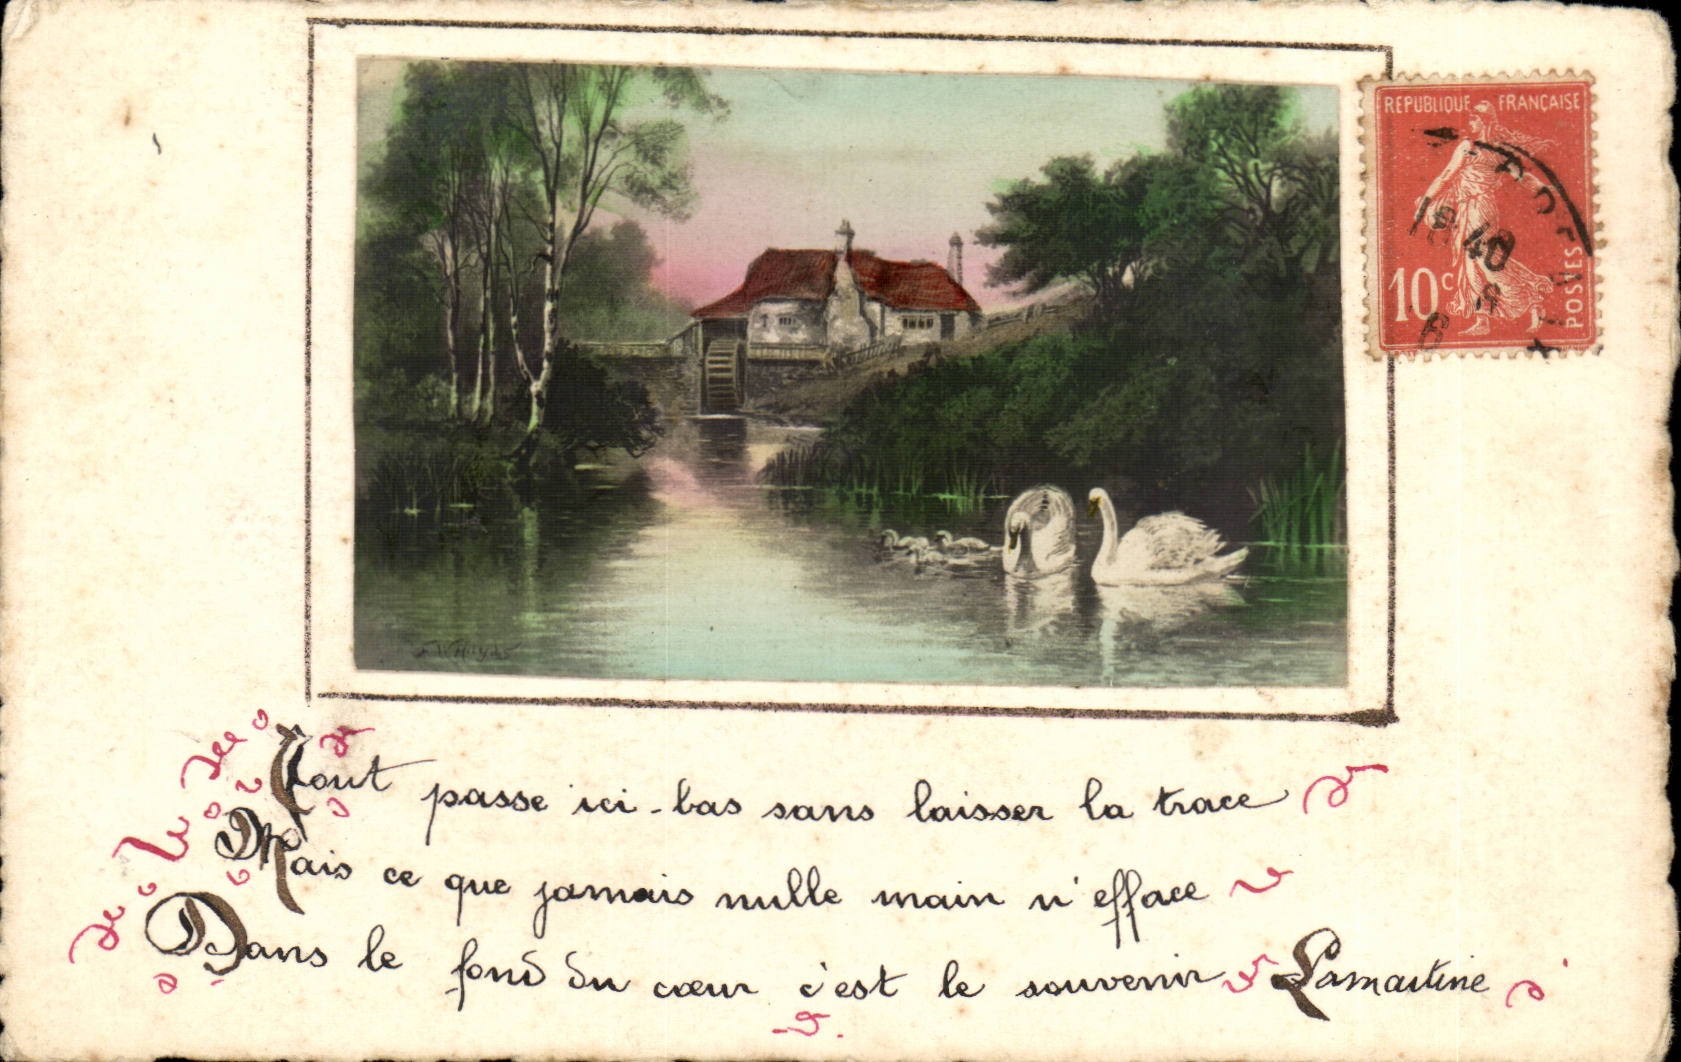 REPUBLIQUE FRANÇAISE
10c
POSTES
18 40
Tout passe ici-bas sans laisser la trace
Mais ce que jamais nulle main n'efface
Dans le fond du cœur c'est le souvenir Lamartine